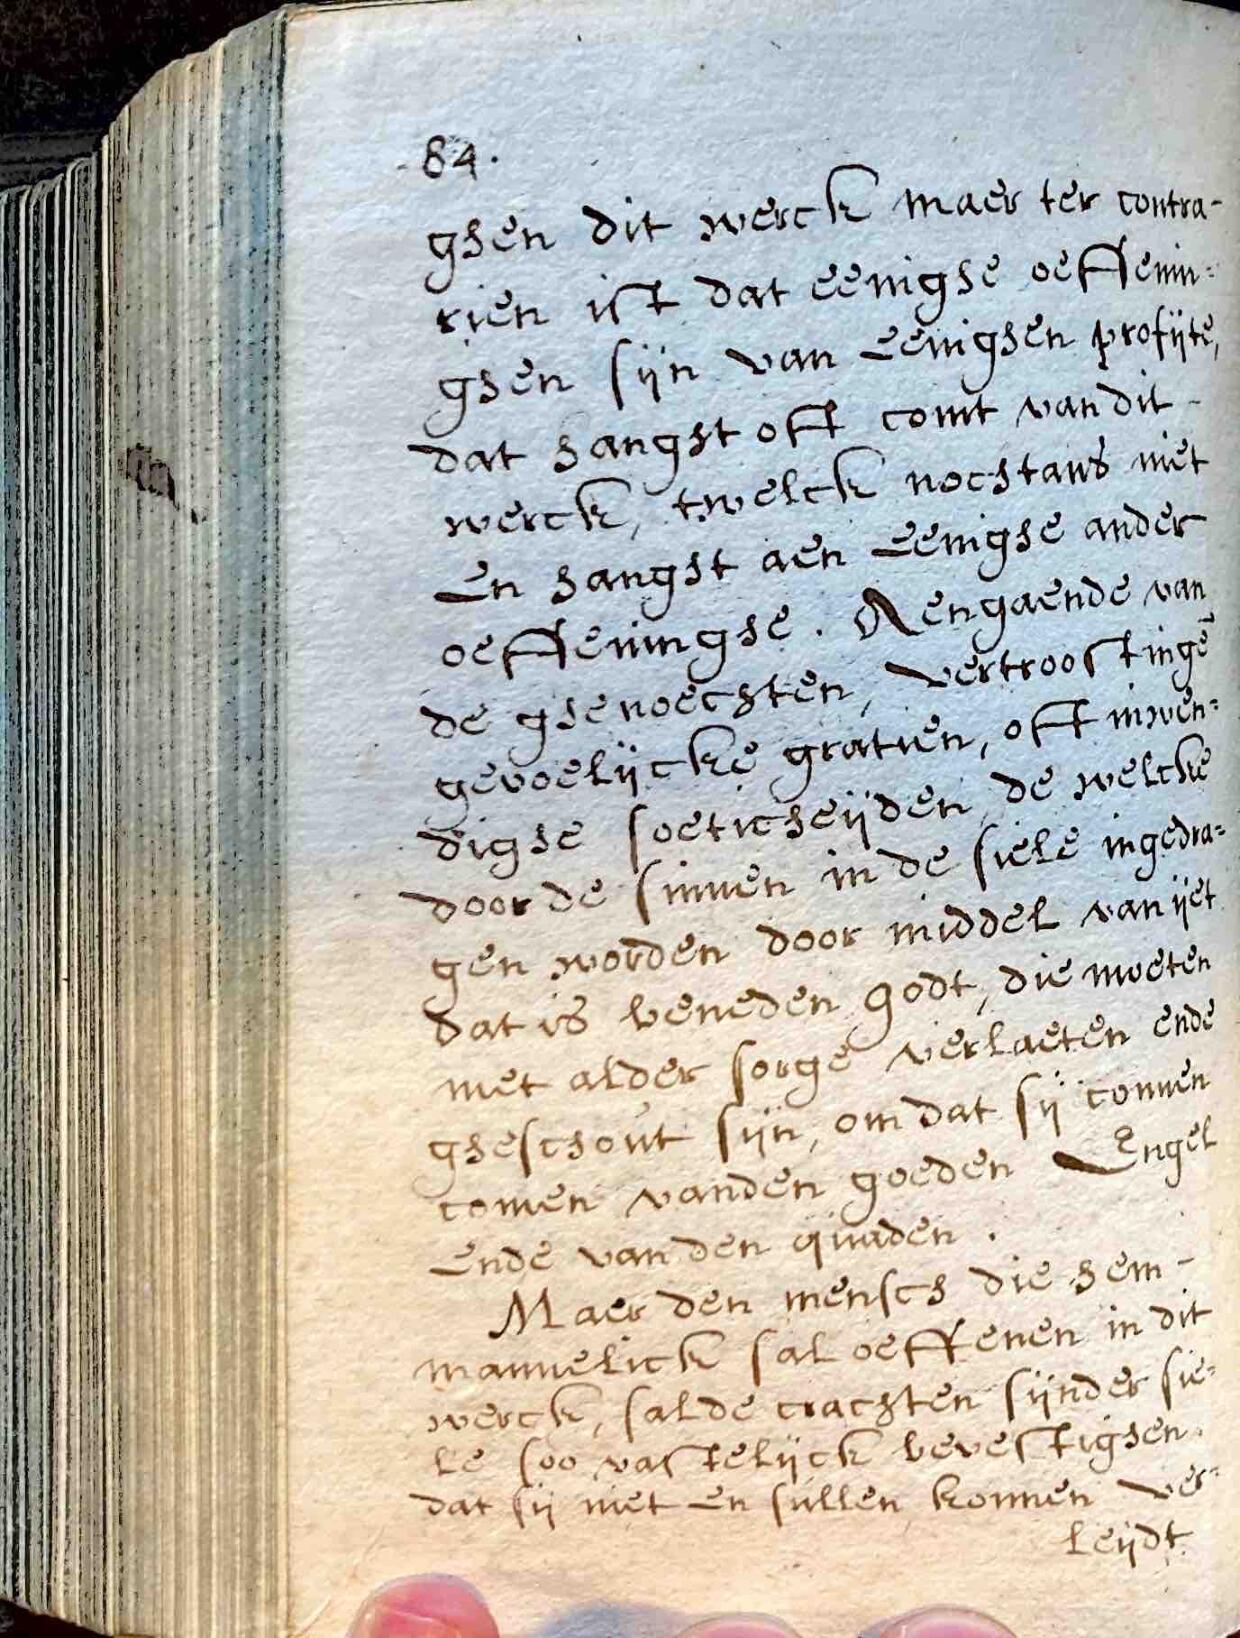 84.
ghen dit werck maer ter contra-
rien ist dat eenighe oeffenin=
ghen sijn van eenighen profijte,
dat hanght oft comt van dit -
werck, twelck nochtans niet
en hanght aen eenighe ander
oeffeninghe. Aengaende van
de ghenoechten, vertroostingē
gevoelijcke gratien, oft inwen=
dighe soeticheijden, de welcke
door de sinnen in de siele ingedra=
gen worden door middel van ijet
dat is beneden godt, die moeten
met alder sorge verlaeten ende
gheschout sijn, om dat sij connen
comen vanden goeden Engel
ende van den quaden.
Maer den mensch die hem -
mannelick sal oeffenen in dit
werck, sal de crachten sijnder sie=
le soo vastelijck bevestighen.
dat sij niet en sullen konnen ver=
leijdt